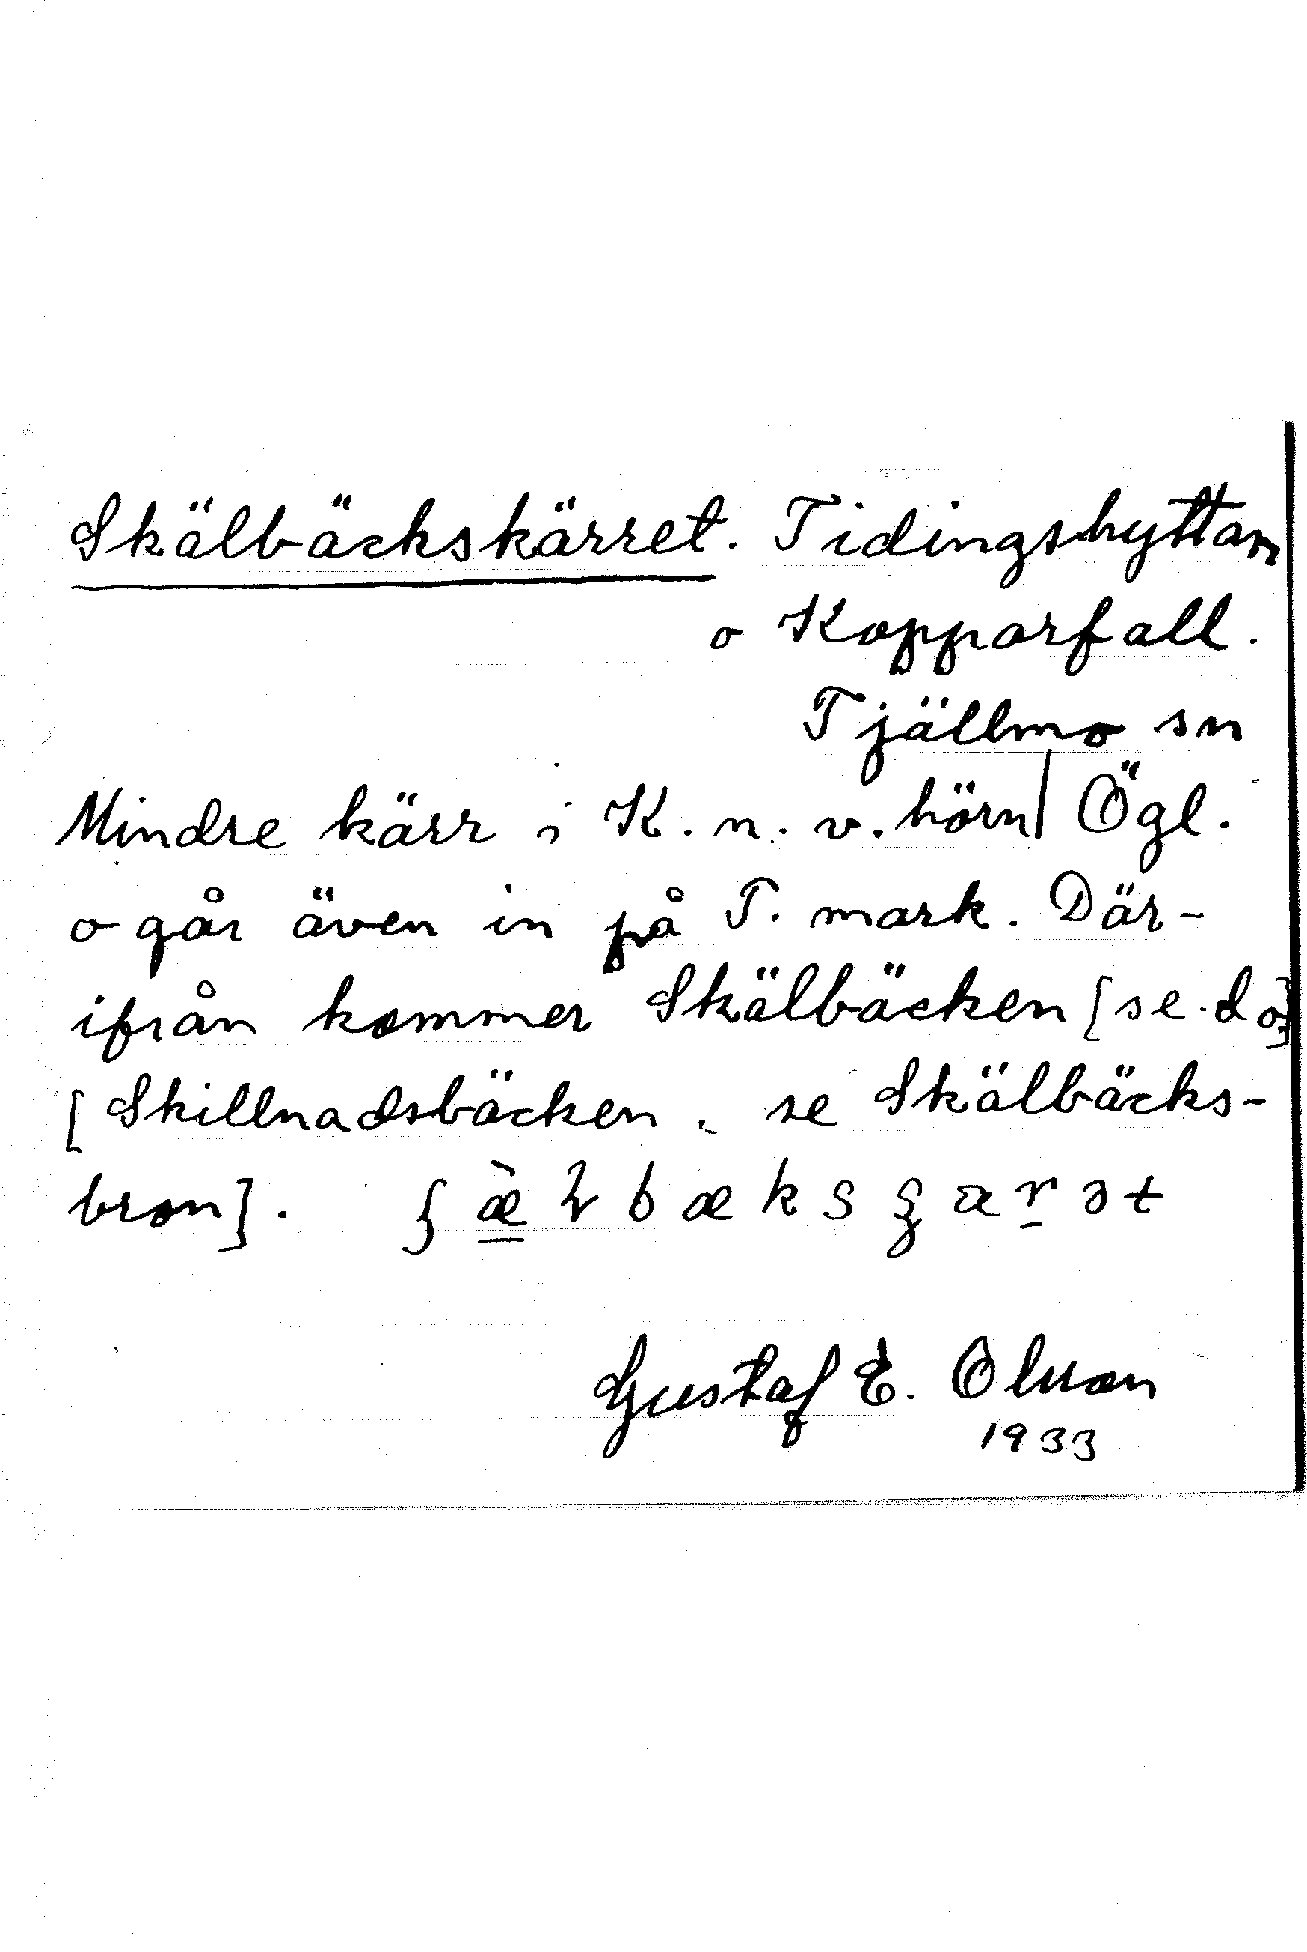 Skälbäckskärret. Tidingshyttan
o Kopparfall.
Tjällmo sn
Mindre kärr i K. n. v. hörn Ögl.
o går även in på T. mark. Där-
ifrån kommer Skälbäcken [se. do]
[Skillnadsbäcken, se Skälbäcks-
bron].
Gustaf E. Olsson
1933